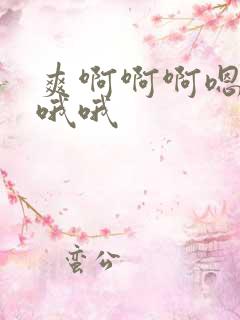 爽啊啊啊嗯
哦哦
蛮公